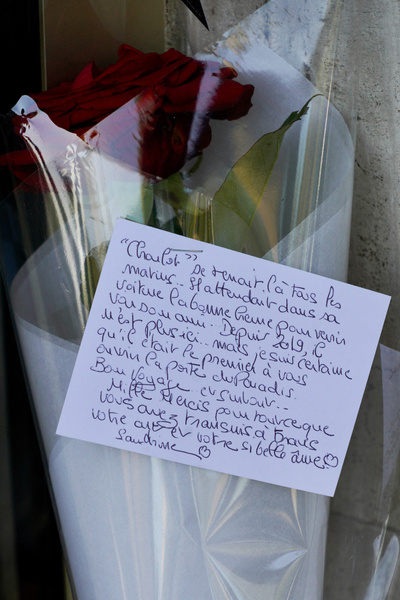 "Charlot" se tenait là tous les
matins... Il attendait dans sa
voiture la bonne heure pour venir
vous ouvrir. Depuis 2019, il
n'est plus ici... mais je suis certaine
qu'il était le premier à vous
ouvrir la porte du Paradis.
Bon Voyage et surtout...
Mille Mercis pour tout ce que
vous avez transmis à
votre art et votre si belle âme
Sandrine